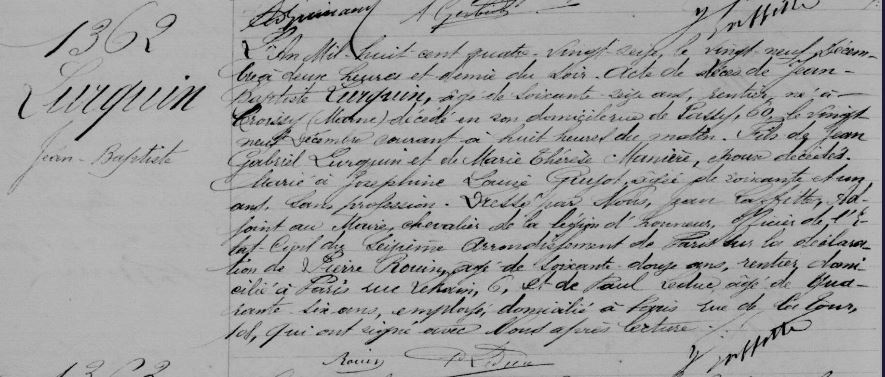 1362
Lurquin
Jean-Baptiste
L'An Mil-huit cent quatre-vingt seize, le vingt neuf Décem-
bre à deux heures et demie du soir. Acte de décès de Jean-
Baptiste Lurquin, âgé de soixante seize ans, rentier, né à
(Marne) décédé en son domicile rue de Passy, 60, le vingt
neuf Décembre courant à huit heures du matin. Fils de Jean
Gabriel Lurquin et de Marie Thérèse Manière, époux décédés.
Marié à Josephine Louise Guyot, âgée de soixante et un
ans, sans profession. Dressé par Nous, Jean Laffitte, Ad-
joint au Maire, chevalier de la légion d'honneur, officier de l'E-
tat-Civil du Seizième Arrondissement de Paris sur la déclara-
tion de Pierre Rouin, âgé de soixante-douze ans, rentier, domi-
cilié à Paris rue Lekain, 6, et de Paul Ledue âgé de qua-
rante-six ans, employé, domicilié à Paris rue de la Tour,
108, qui ont signé avec Nous après lecture.
Rouin
J Laffitte
1363